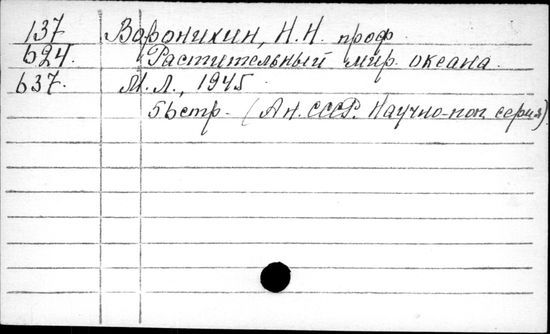 137 Воронихин, Н.Н. проф.
624. Растительный мир океана.
637. М.Л., 1945
56стр. (Ан. СССР. Научно-поп серия)